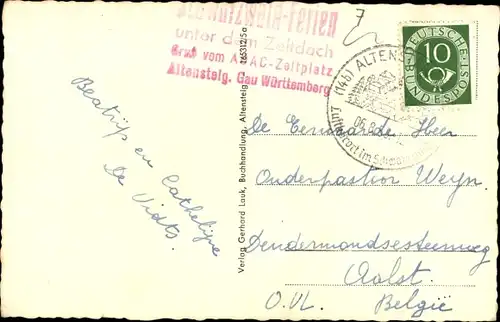 Schwarzwald-Ferien
unter dem Zeltdach
Gruß vom ADAC-Zeltplatz
Altensteig, Gau Württemberg
7
DEUTSCHE
BUNDESPOST
10
(14b) ALTENS
Luftkurort im Schwarzwald
06.8.
Verlag Gerhard Lauk, Buchhandlung, Altensteig
Beatrijs en Cathelijne
De Vidts.
De Eerwaarde Heer
Onderpastor Weyn
Dendermondsesteenweg
Aalst.
O.VL. België